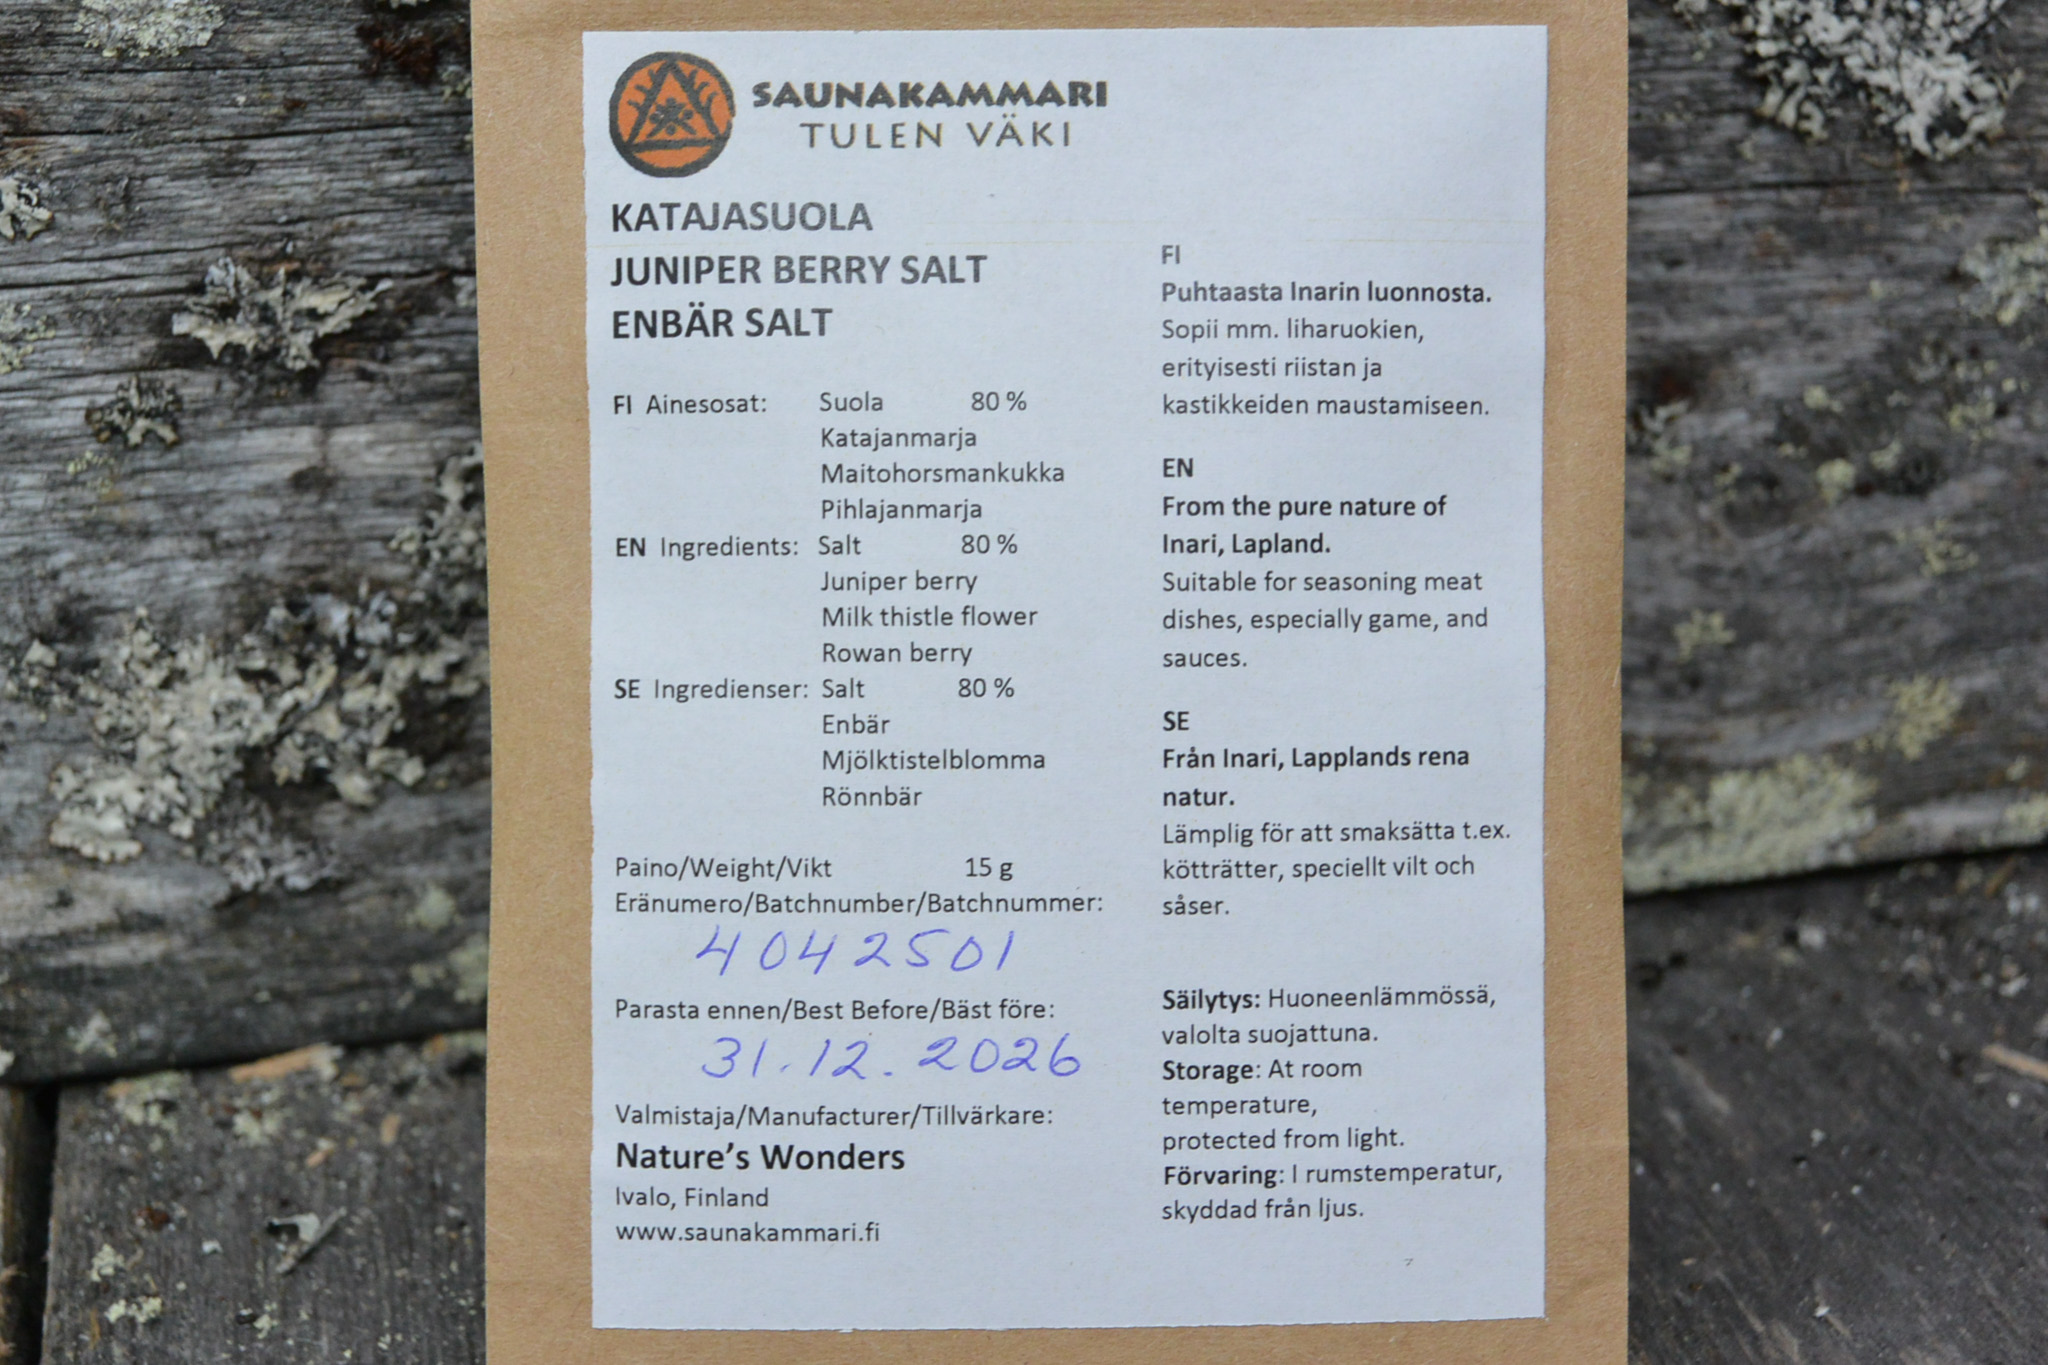 SAUNAKAMMARI
TULEN VÄKI
KATAJASUOLA
JUNIPER BERRY SALT
ENBÄR SALT
FI Ainesosat: Suola 80 %
Katajanmarja
Maitohorsmankukka
Pihlajanmarja
EN Ingredients: Salt 80 %
Juniper berry
Milk thistle flower
Rowan berry
SE Ingredienser: Salt 80 %
Enbär
Mjölktistelblomma
Rönnbär
Paino/Weight/Vikt 15 g
Eränumero/Batchnumber/Batchnummer:
4042501
Parasta ennen/Best Before/Bäst före:
31.12.2026
Valmistaja/Manufacturer/Tillvärkare:
Nature's Wonders
Ivalo, Finland
www.saunakammari.fi
FI
Puhtaasta Inarin luonnosta.
Sopii mm. liharuokien,
erityisesti riistan ja
kastikkeiden maustamiseen.
EN
From the pure nature of
Inari, Lapland.
Suitable for seasoning meat
dishes, especially game, and
sauces.
SE
Från Inari, Lapplands rena
natur.
Lämplig för att smaksätta t.ex.
kötträtter, speciellt vilt och
såser.
Säilytys: Huoneenlämmössä,
valolta suojattuna.
Storage: At room
temperature,
protected from light.
Förvaring: I rumstemperatur,
skyddad från ljus.